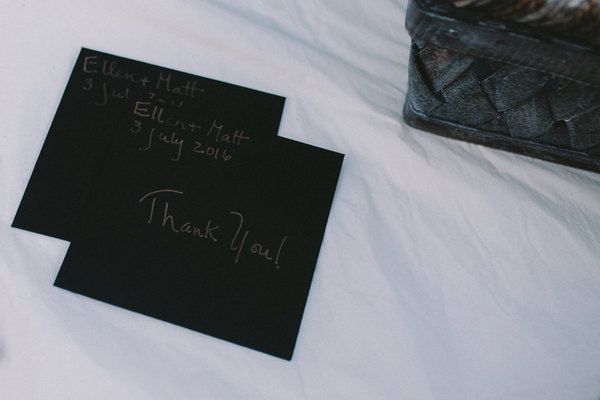 Ellen + Matt
3 Jul
Ellen + Matt
3 July 2016
Thank You!